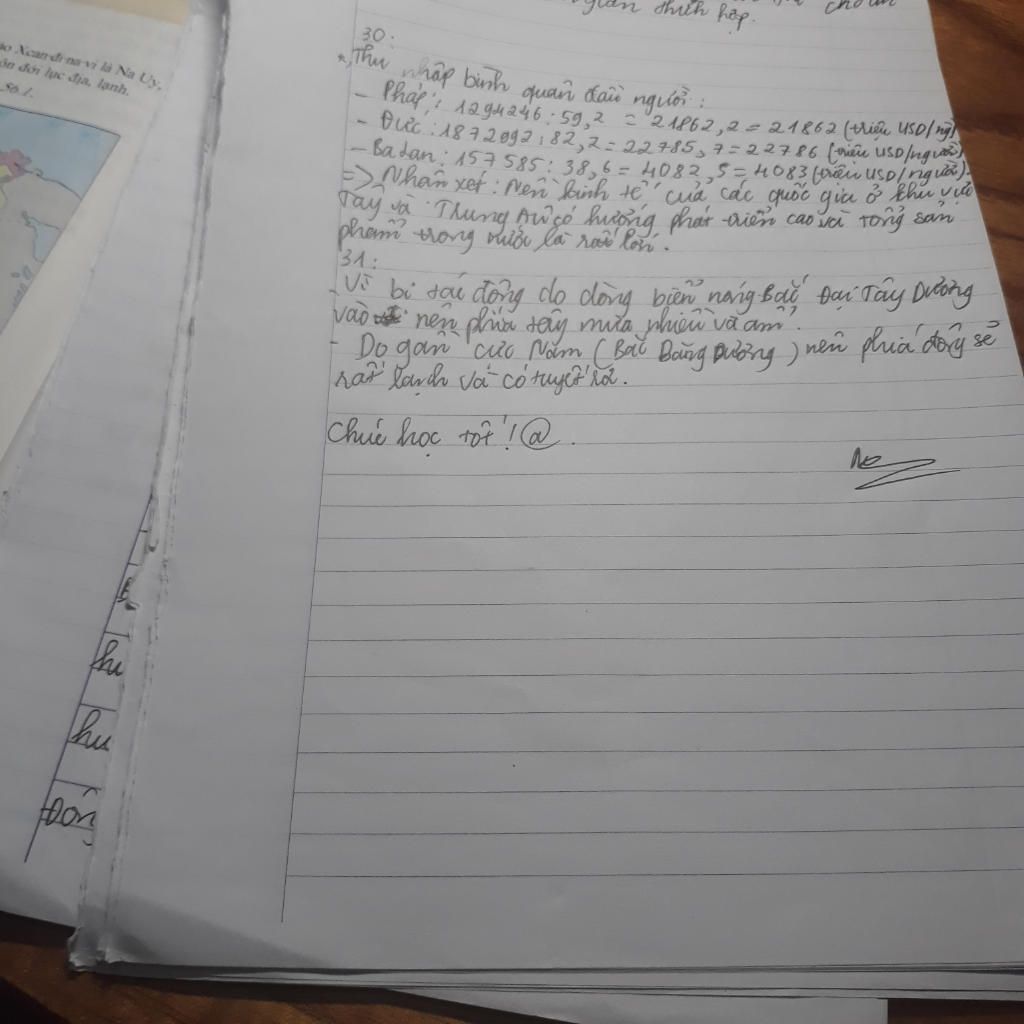 gian thích hợp.
30:
*, Thu nhập bình quân đầu người:
- Pháp: 1294246 : 59,2 = 21862,2 = 21862 (triệu USD/ng)
- Đức: 1872992 : 82,2 = 22785,7 = 22786 (triệu USD/người)
- Ba Lan: 157585 : 38,6 = 4082,5 = 4083 (triệu USD/người).
=> Nhận xét: Nền kinh tế của các quốc gia ở khu vực
Tây và Trung Âu có hướng phát triển cao và tổng sản
phẩm trong nước là rất lớn.
31:
- Vì bị tác động do dòng biển nóng Bắc Đại Tây Dương
vào nên phía tây mưa nhiều và ấm.
- Do gần cực Nam (Bắc Băng Dương) nên phía đông sẽ
rất lạnh và có tuyết rơi.
Chúc học tốt! @.
ào Xcan-đi-na-vi là Na Uy,
ôn đới lục địa, lạnh.
hu
hu
Đôn